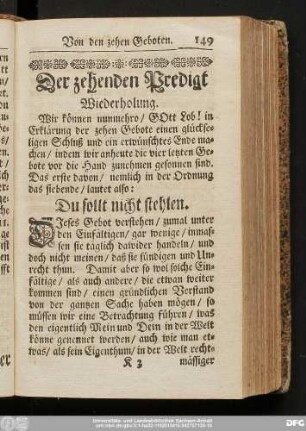 Von den zehen Geboten. 149
Der zehenden Predigt
Wiederholung.
Wir können nunmehro / GOtt Lob! in
Erklärung der zehen Gebote einen glückse-
ligen Schluß und ein erwünschtes Ende ma-
chen / indem wir anheute die vier letzten Ge-
bote vor die Hand zunehmen gesonnen sind.
Das erste davon / nemlich in der Ordnung
das siebende / lautet also:
Du sollt nicht stehlen.
DIeses Gebot verstehen / zumal unter
den Einfältigen / gar wenige / innas-
sen sie täglich dawider handeln / und
doch nicht meinen / daß sie sündigen und Un-
recht thun. Damit aber so wol solche Ein-
fältige / als auch andere / die etwan weiter
kommen sind / einen gründlichen Verstand
von der gantzen Sache haben mögen / so
müssen wir eine Betrachtung führen / was
den eigentlich Mein und Dein in der Welt
könne genennet werden / auch wie man et-
was / als sein Eigenthum / in der Welt recht-
K 3 mässiger
Universitäts- und Landesbibliothek Sachsen-Anhalt
DFG